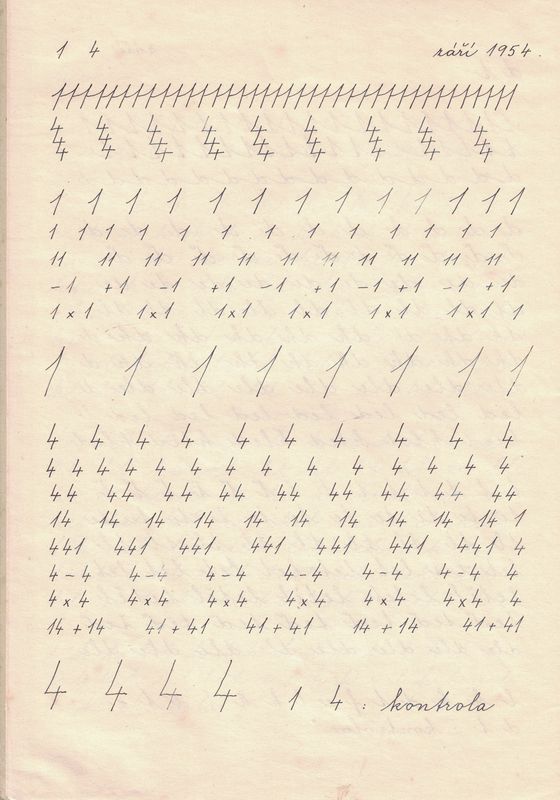 1 4 září 1954.
1 1 1 1 1 1 1 1 1 1 1 1 1 1 1 1 1 1 1 1 1 1 1 1 1 1 1 1 1 1 1 1 1 1 1 1 1 1
4 4 4 4 4 4 4 4 4
4 4 4 4 4 4 4 4 4
4 4 4 4 4 4 4 4 4
1 1 1 1 1 1 1 1 1 1 1 1 1
1 1 1 1 1 1 1 1 1 1 1 1
11 11 11 11 11 11 11 11 11 11 11
-1 +1 -1 +1 -1 +1 -1 +1 -1 +1
1×1 1×1 1×1 1×1 1×1 1×1 1
1 1 1 1 1 1 1 1
4 4 4 4 4 4 4 4 4 4
4 4 4 4 4 4 4 4 4 4 4 4 4 4
44 44 44 44 44 44 44 44 44
14 14 14 14 14 14 14 14 14 14 1
441 441 441 441 441 441 441 4
4-4 4-4 4-4 4-4 4-4 4-4 4
4×4 4×4 4×4 4×4 4×4 4×4 4
14+14 41+41 41+41 14+14 41+41
4 4 4 4 1 4 : kontrola